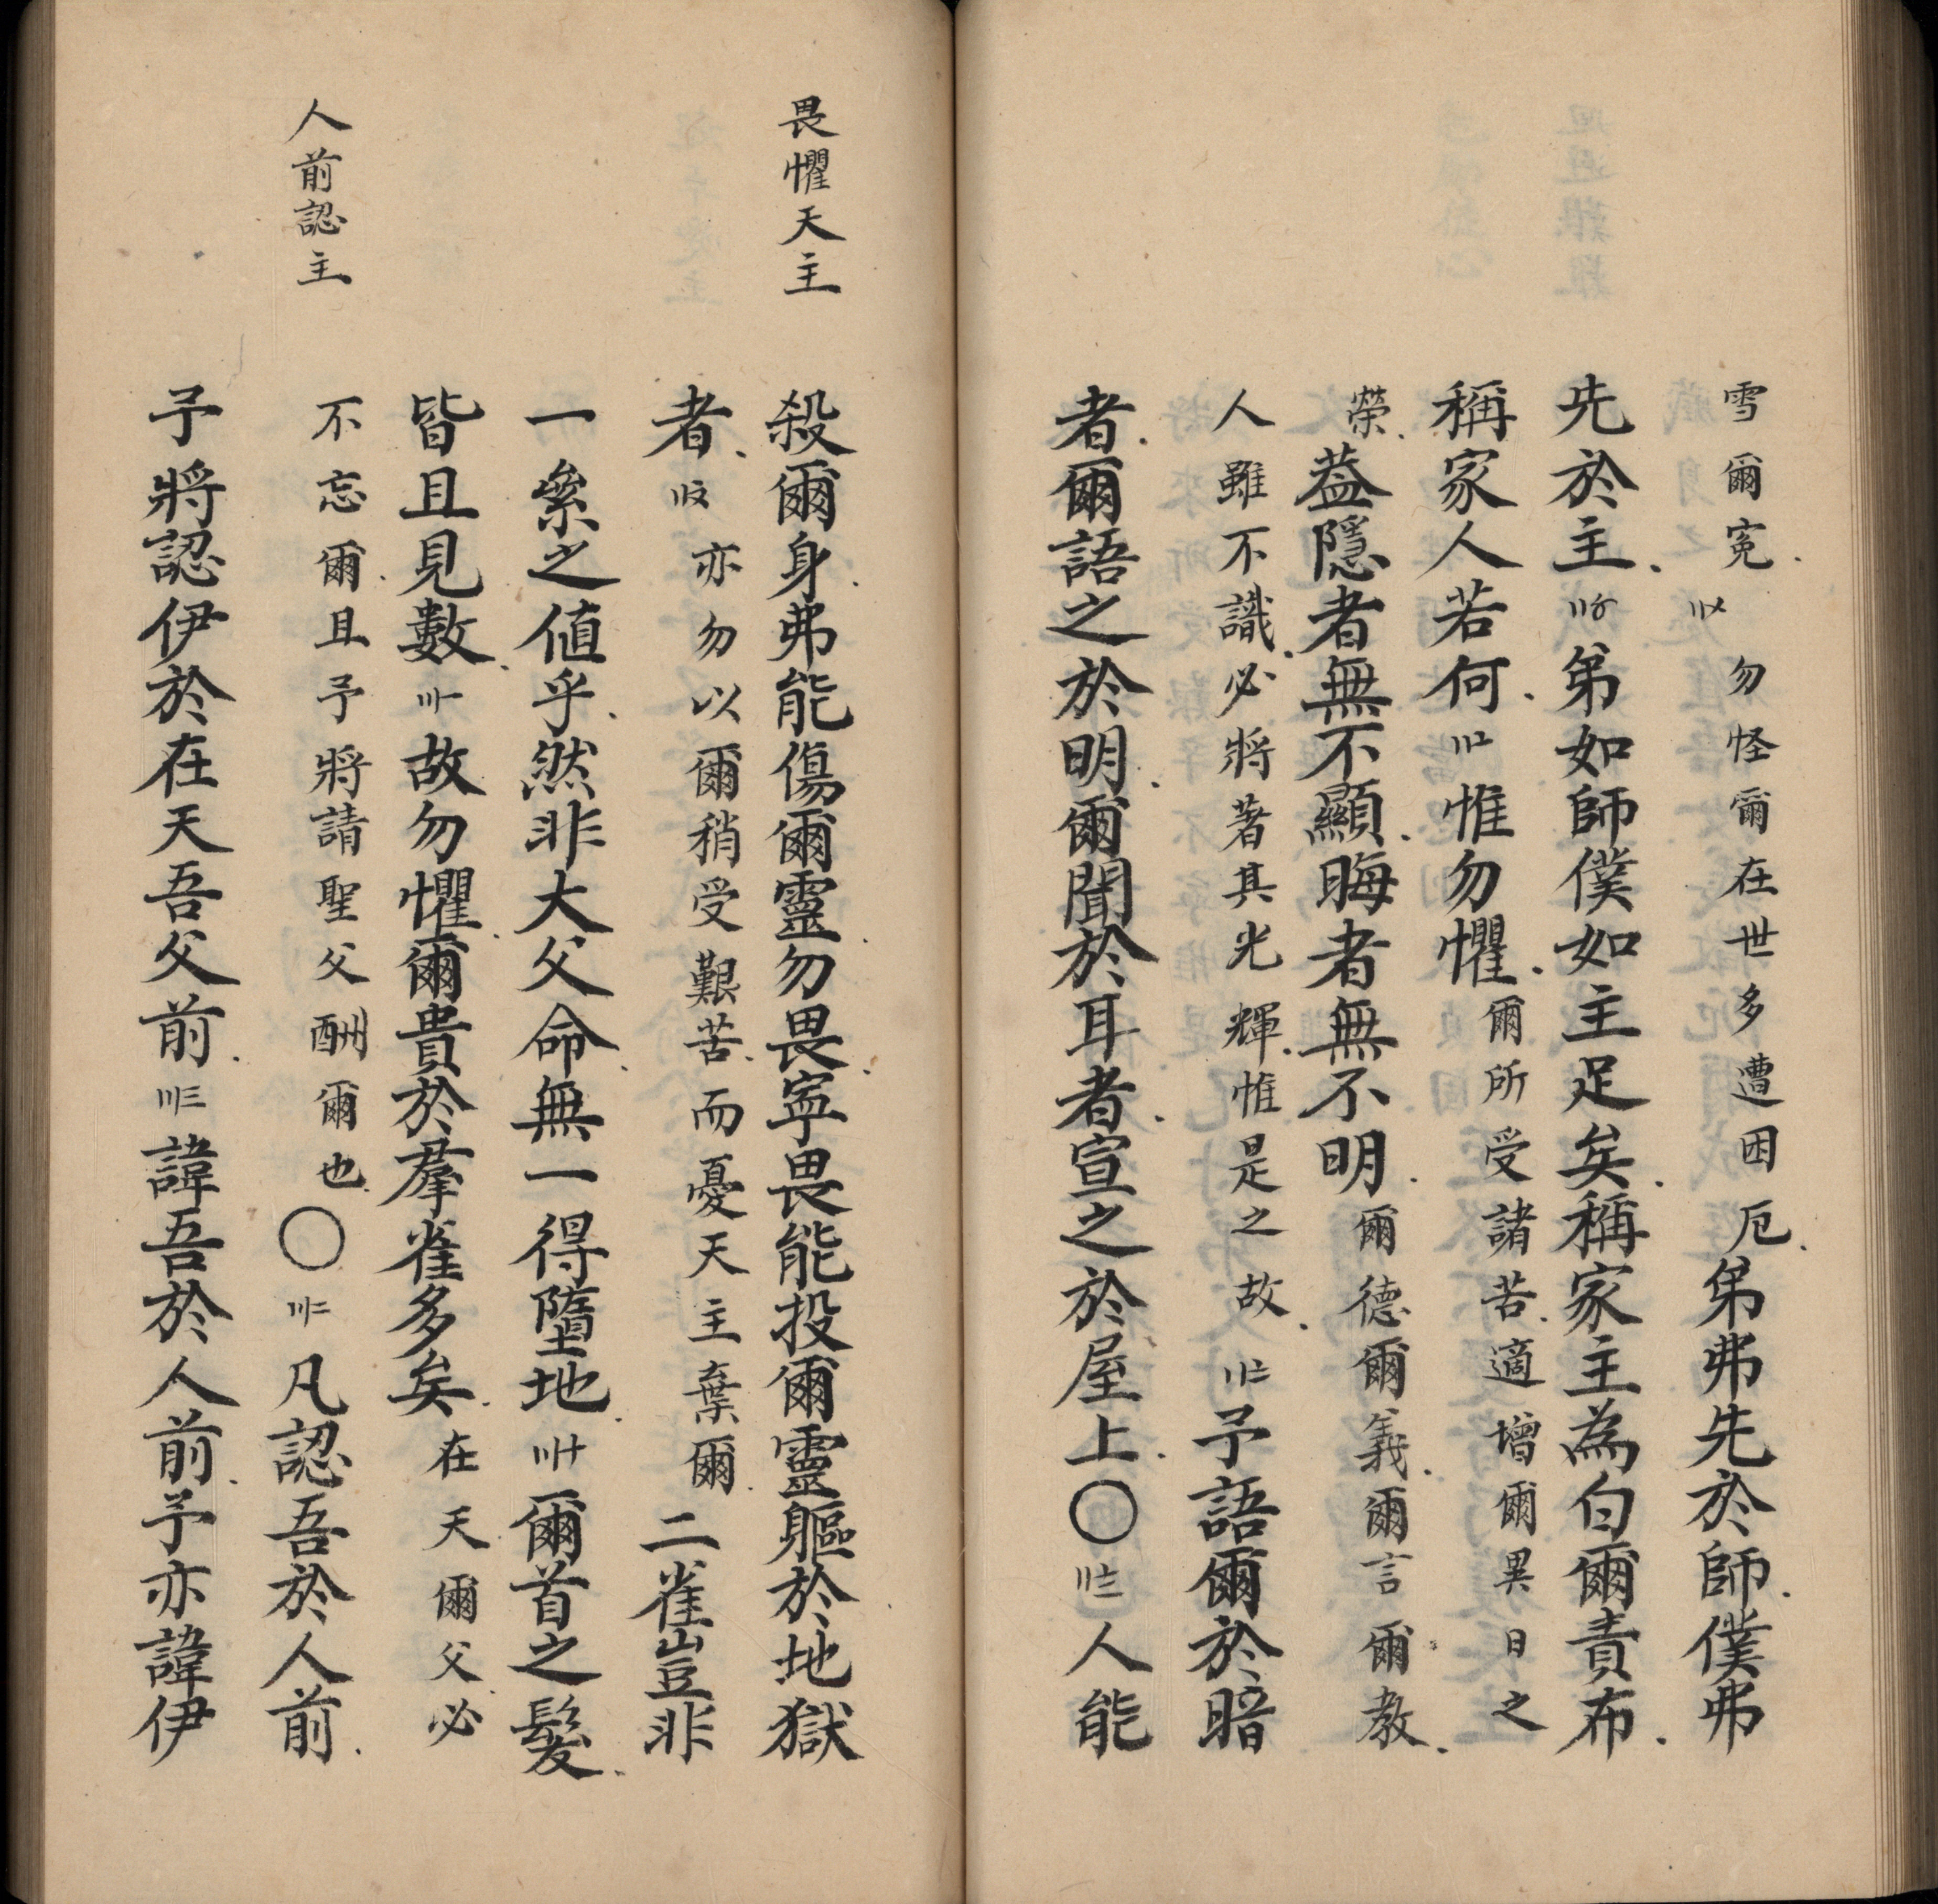 雪爾寃〢〤勿怪爾在世多遭困厄弟弗先於師僕弗
先於主〢〥弟如師僕如主足矣稱家主為白爾責布
稱家人若何〢〦惟勿懼爾所受諸苦適增爾異日之
榮葢隱者無不顯晦者無不明爾德爾義爾言爾教
人雖不識必將著其光輝惟是之故〢〧予語爾於暗
者爾語之於明爾聞於耳者宣之於屋上〇〢〨人能
畏懼天主
殺爾身弗能傷爾靈勿畏寧畏能投爾靈軀於地獄
者〢〩亦勿以爾稍受艱苦而憂天主棄爾二雀豈非
一絫之値乎然非大父命無一得墮地〣十爾首之髮
皆且見數〣〡故勿懼爾貴於羣雀多矣在天爾父必
人前認主
不忘爾且予將請聖父酬爾也〇〣二凡認吾於人前
予將認伊於在天吾父前〣三諱吾於人前予亦諱伊